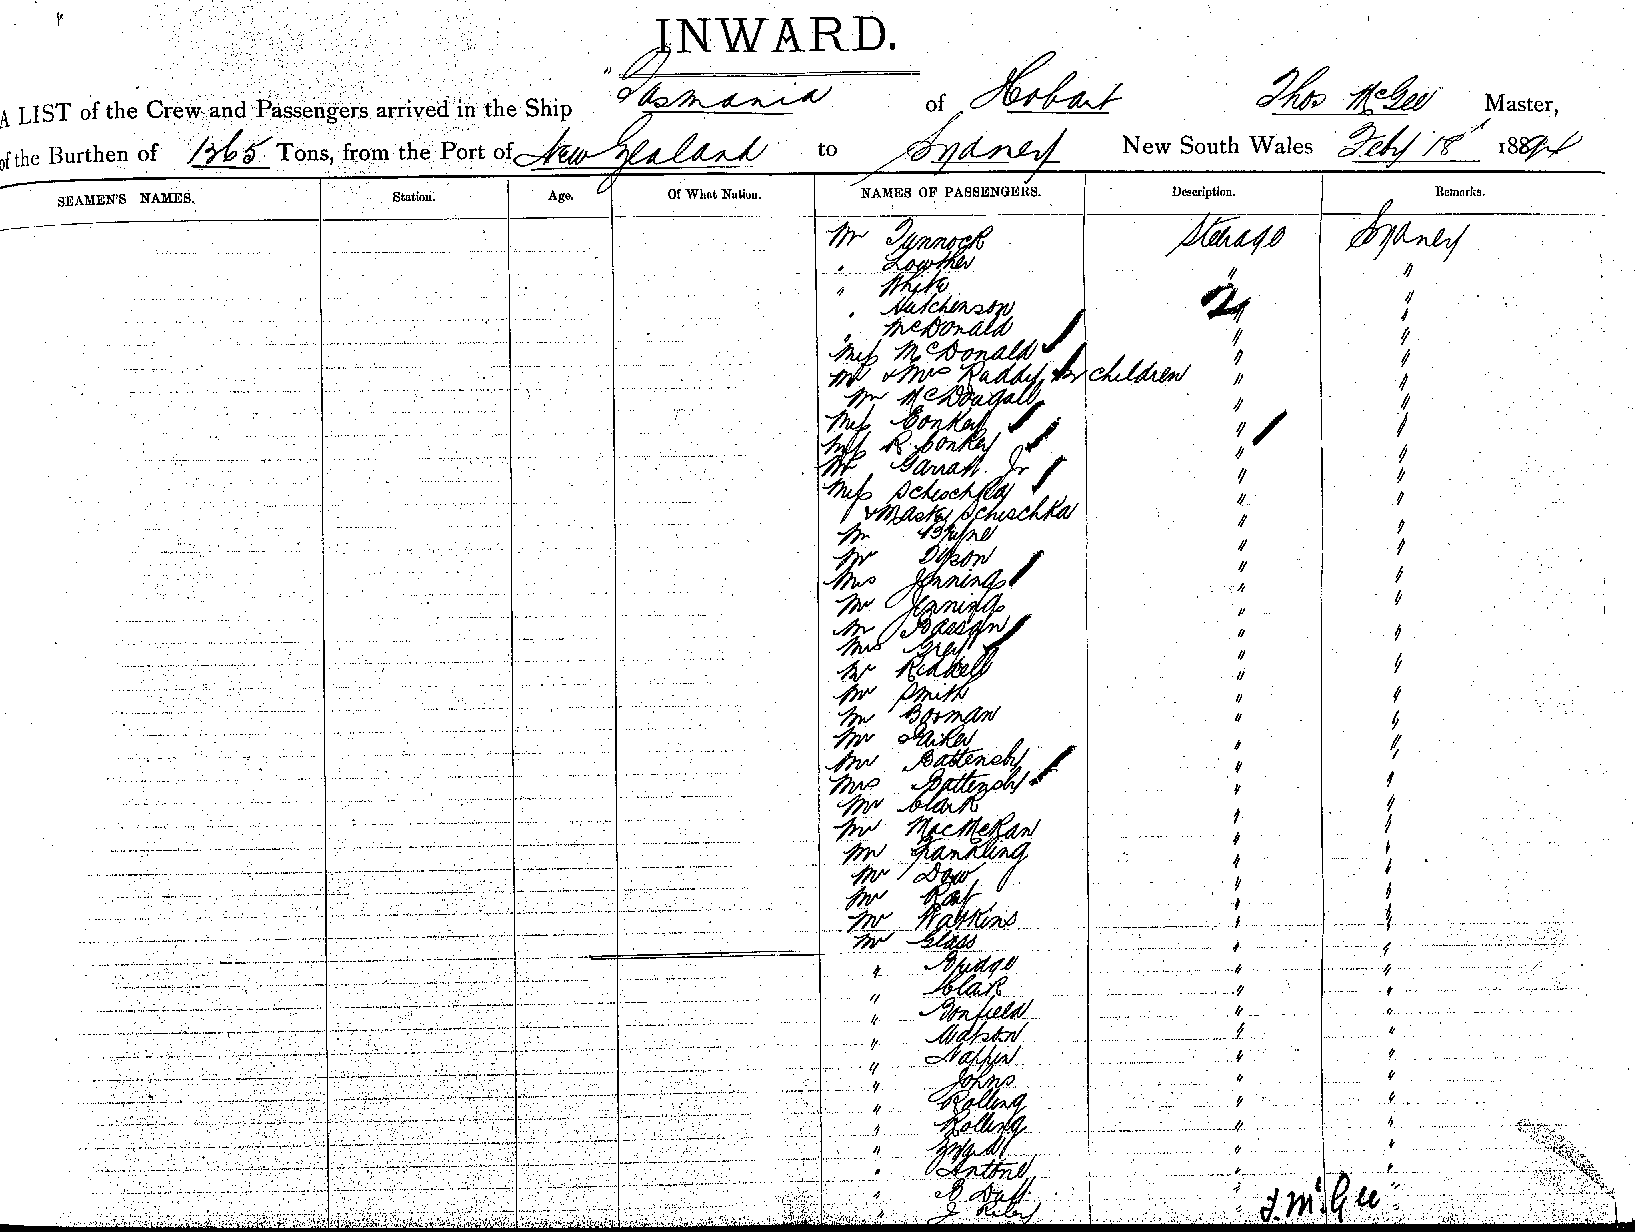 INWARD.
A LIST of the Crew and Passengers arrived in the Ship "Tasmania of Hobart Thos McGee Master,
of the Burthen of 1365 Tons, from the Port of New Zealand to Sydney New South Wales Feby 18 1894
SEAMEN'S NAMES. Station. Age. Of What Nation. NAMES OF PASSENGERS. Description. Remarks.
Mr Tynnock Steerage Sydney
" Lowther " "
" White " "
" Hutchenson " "
" McDonald " "
Miss McDonald " "
Mr & Mrs Raddy children " "
Mr McDougall " "
Miss Conkey " "
Miss R Conkey " "
Mr Garrah Jr " "
Miss Schischka " "
& Master Schischka " "
Mr " "
Mr Dixon " "
Mrs Jennings " "
Mr Jennings " "
Mr " "
Mrs Grey " "
Mr Riddell " "
Mr Smith " "
Mr Borman " "
Mr " "
Mr Battensby " "
Mrs Battensby " "
Mr Clark " "
Mr MacMeKan " "
Mr Grambling " "
Mr Dow " "
Mr " "
Mr Watkins " "
Mr Glass " "
" Bridge " "
" Clark " "
" Bonfield " "
" Watson " "
" Napper " "
" Johns " "
" Rolling " "
" Rolling " "
" " "
" Antone " "
" " "
" J Riley
T. McGee